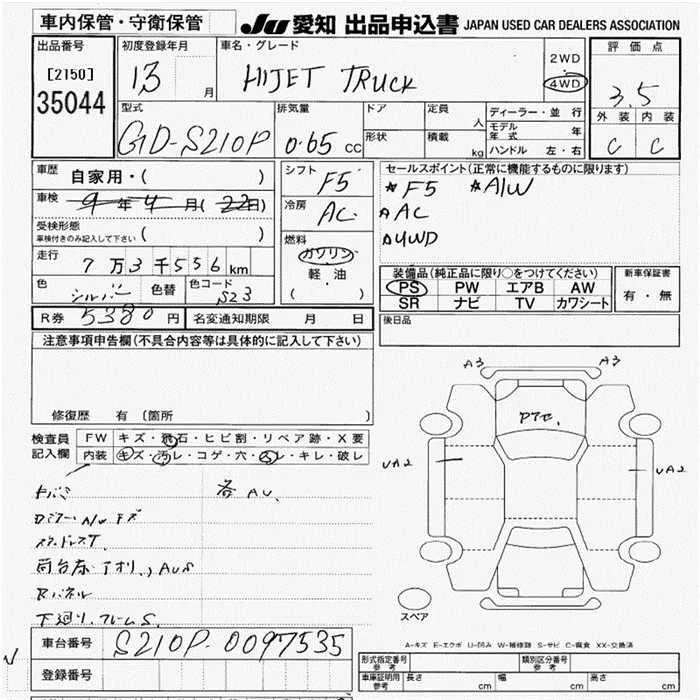 車内保管・守衛保管
JU 愛知 出品申込書 JAPAN USED CAR DEALERS ASSOCIATION
出品番号 [2150] 35044
初度登録年月 13 月
車名・グレード HIJET TRUCK
2WD
4WD
評価点 3.5
外装 内装
C C
型式 GD-S210P
排気量 0.65 CC
ドア 定員 人
形状 積載 kg
ディーラー・並行
モデル年式 年
ハンドル 左・右
車歴 自家用・( )
車検 9年4月(22日)
受検形態 ( )
車検付きのみ記入して下さい
走行 7万3千556km
色 シルバー 色替 色コード S23
シフト F5
冷房 AC
燃料 ガソリン
軽・油
( ・ )
セールスポイント(正常に機能するものに限ります)
*F5 *A/W
*AC
*4WD
装備品(純正品に限り○をつけてください)
PS PW エアB AW
SR ナビ TV カワシート
新車保証書
有・無
R券 5380円 名変通知期限 月 日
後日品
注意事項申告欄(不具合内容等は具体的に記入して下さい)
修復歴 有(箇所
検査員記入欄
FW キズ・飛石・ヒビ割・リペア跡・X要
内装 キズ・汚レ・コゲ・穴・スレ・キレ・破レ
各 AU、
A/W キズ
下廻り、フレームS.
A3 A3
UA2 UA2
スペア
A-キズ E-エクボ U-凹み W-補修跡 S-サビ C-腐食 XX-交換済
車台番号 S210P-0097535
登録番号
形式指定番号 参考 類別区分番号 参考
車庫証明用 参考 長さ cm 幅 cm 高さ cm